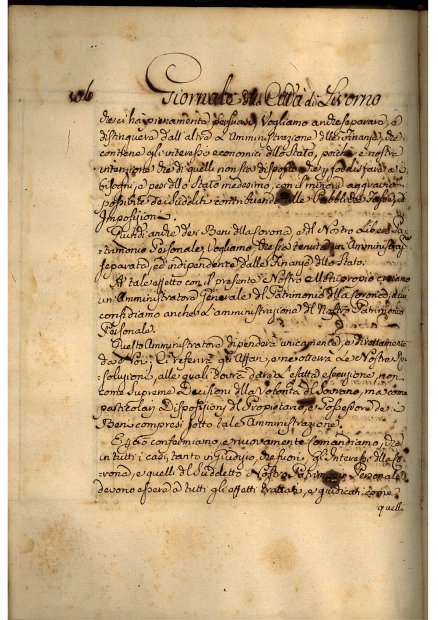 106
Giornale della Città di Livorno
che ci ha pienamente persuasi, Vogliamo anche separare, e
distinguere dall'altra l'Amministrazione delle Finanze, che
contiene gl'interessi economici dello Stato, poichè è nostra
intenzione che di quelli non sia disposto che per sodisfare ai
bisogni pesi dello Stato medesimo, con il minore aggravio
possibile dei Sudditi contribuendo alle Pubbliche Tasse, ed
Imposizioni.
Quindi anche dei Beni della Corona, e del Nostro Libero Pa-
trimonio Personale, Vogliamo che sia tenuta un Amministraz.
separata, ed indipendente dalle Finanze dello Stato.
A tale effetto con il presente Nostro Motuproprio creiamo
un Amministratore Generale del Patrimonio della Corona, a cui
confidiamo anche l'amministrazione del Nostro Patrimonio
Personale.
Questo Amministratore dipenderà unicamente, e direttamente
da Noi: Ci riferirà gli Affari, e ne otterrà le Nostre Ri-
soluzioni, alle quali dovrà dare la esatta esecuzione, non
come Supreme Decisioni della Volontà del Sovrano, ma come
particolari Disposizioni del Proprietario, e Possessore de
Beni compresi sotto tale Amministrazione.
E sì come confermiamo, e nuovamente comandiamo, che
in tutti i casi, tanto in giudizio, che fuori gl'Interessi della Co-
rona, e quelli del suddetto Nostro Patrimonio Personale
devono essere a tutti gli effetti trattati, e giudicati come
quelli